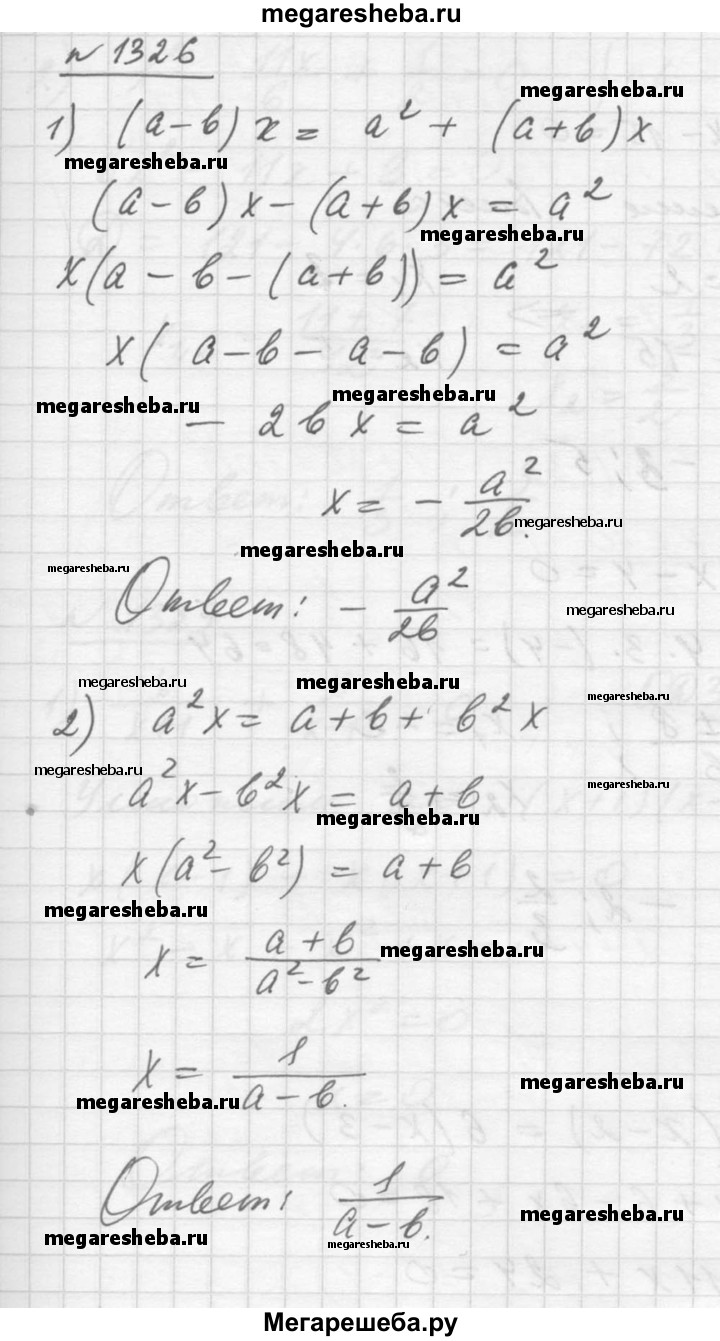 megaresheba.ru
№ 1326
megaresheba.ru
1) (a-b)x = a² + (a+b)x
megaresheba.ru
(a-b)x-(a+b)x = a²
megaresheba.ru
x(a-b-(a+b)) = a²
x(a-b-a-b) = a²
megaresheba.ru
megaresheba.ru
- 2bx = a²
x = - a²/2b.
megaresheba.ru
megaresheba.ru
megaresheba.ru
Ответ: - a²/2b
megaresheba.ru
megaresheba.ru
megaresheba.ru
megaresheba.ru
2) a²x = a+b+ b²x
megaresheba.ru
a²x-b²x = a+b
megaresheba.ru
megaresheba.ru
x(a²-b²) = a+b
megaresheba.ru
x = a+b/a²-b²
megaresheba.ru
x = 1/a-b.
megaresheba.ru
megaresheba.ru
Ответ: 1/a-b.
megaresheba.ru
megaresheba.ru
megaresheba.ru
Мегарешеба.ру